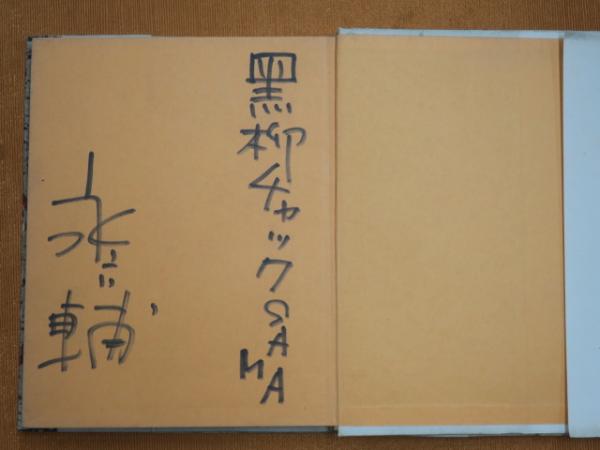 黒柳チャックSAMA
永六輔